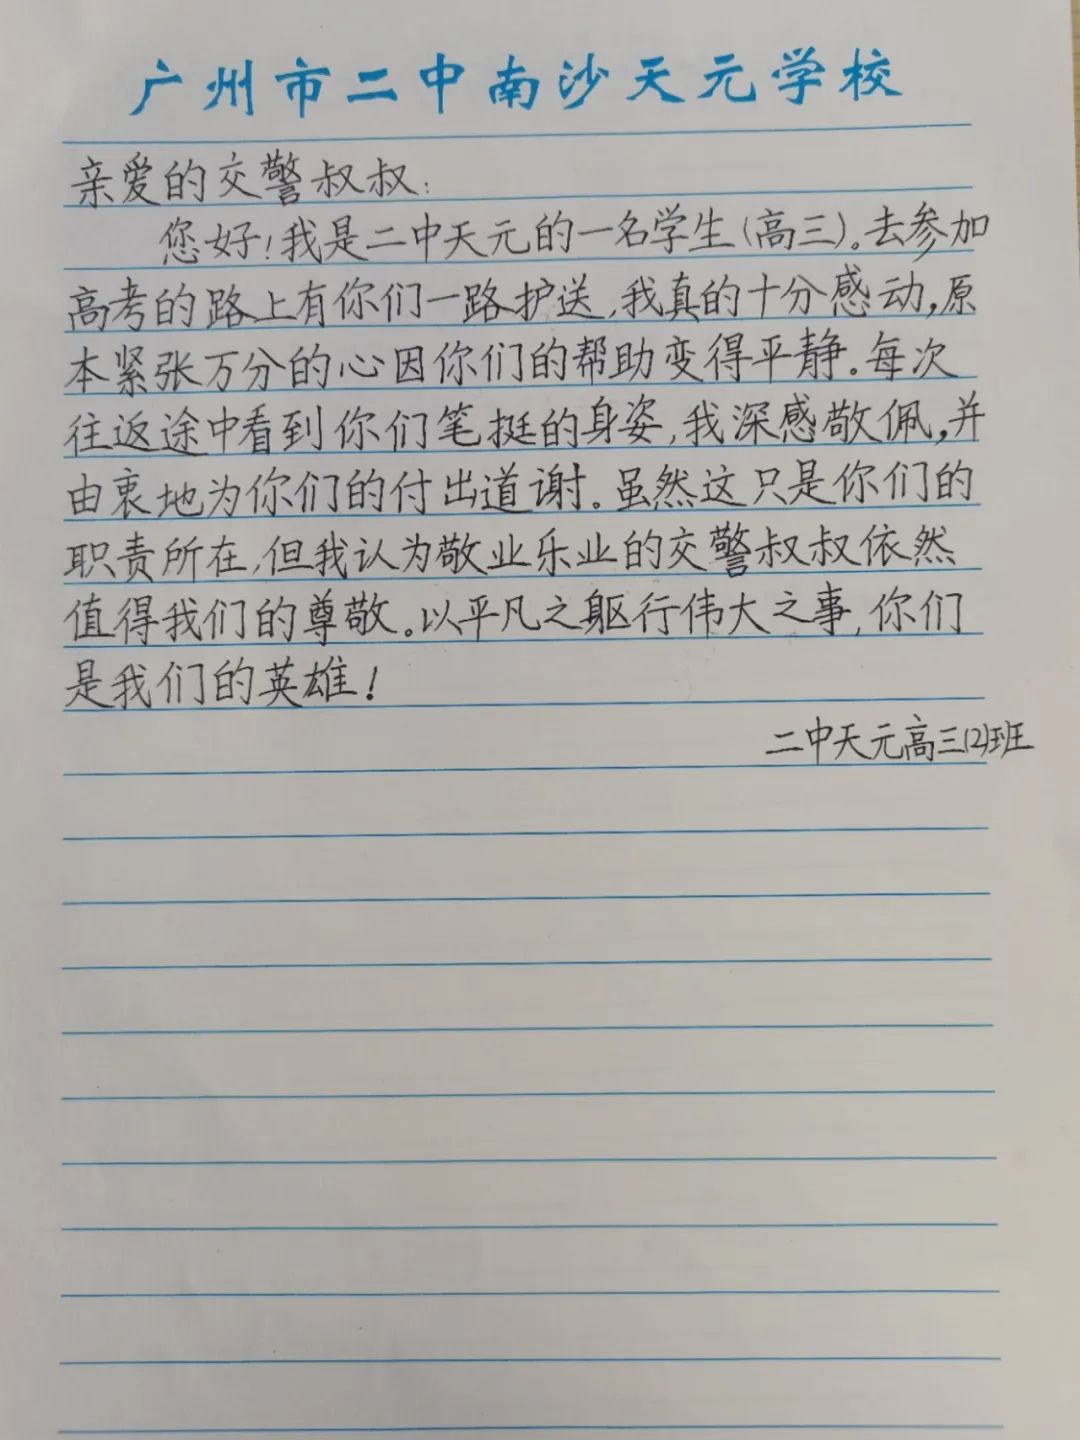 广州市二中南沙天元学校
亲爱的交警叔叔:
您好!我是二中天元的一名学生(高三)。去参加
高考的路上有你们一路护送,我真的十分感动,原
本紧张万分的心因你们的帮助变得平静。每次
往返途中看到你们笔挺的身姿,我深感敬佩,并
由衷地为你们的付出道谢。虽然这只是你们的
职责所在,但我认为敬业乐业的交警叔叔依然
值得我们的尊敬。以平凡之躯行伟大之事,你们
是我们的英雄!
二中天元高三(2)班